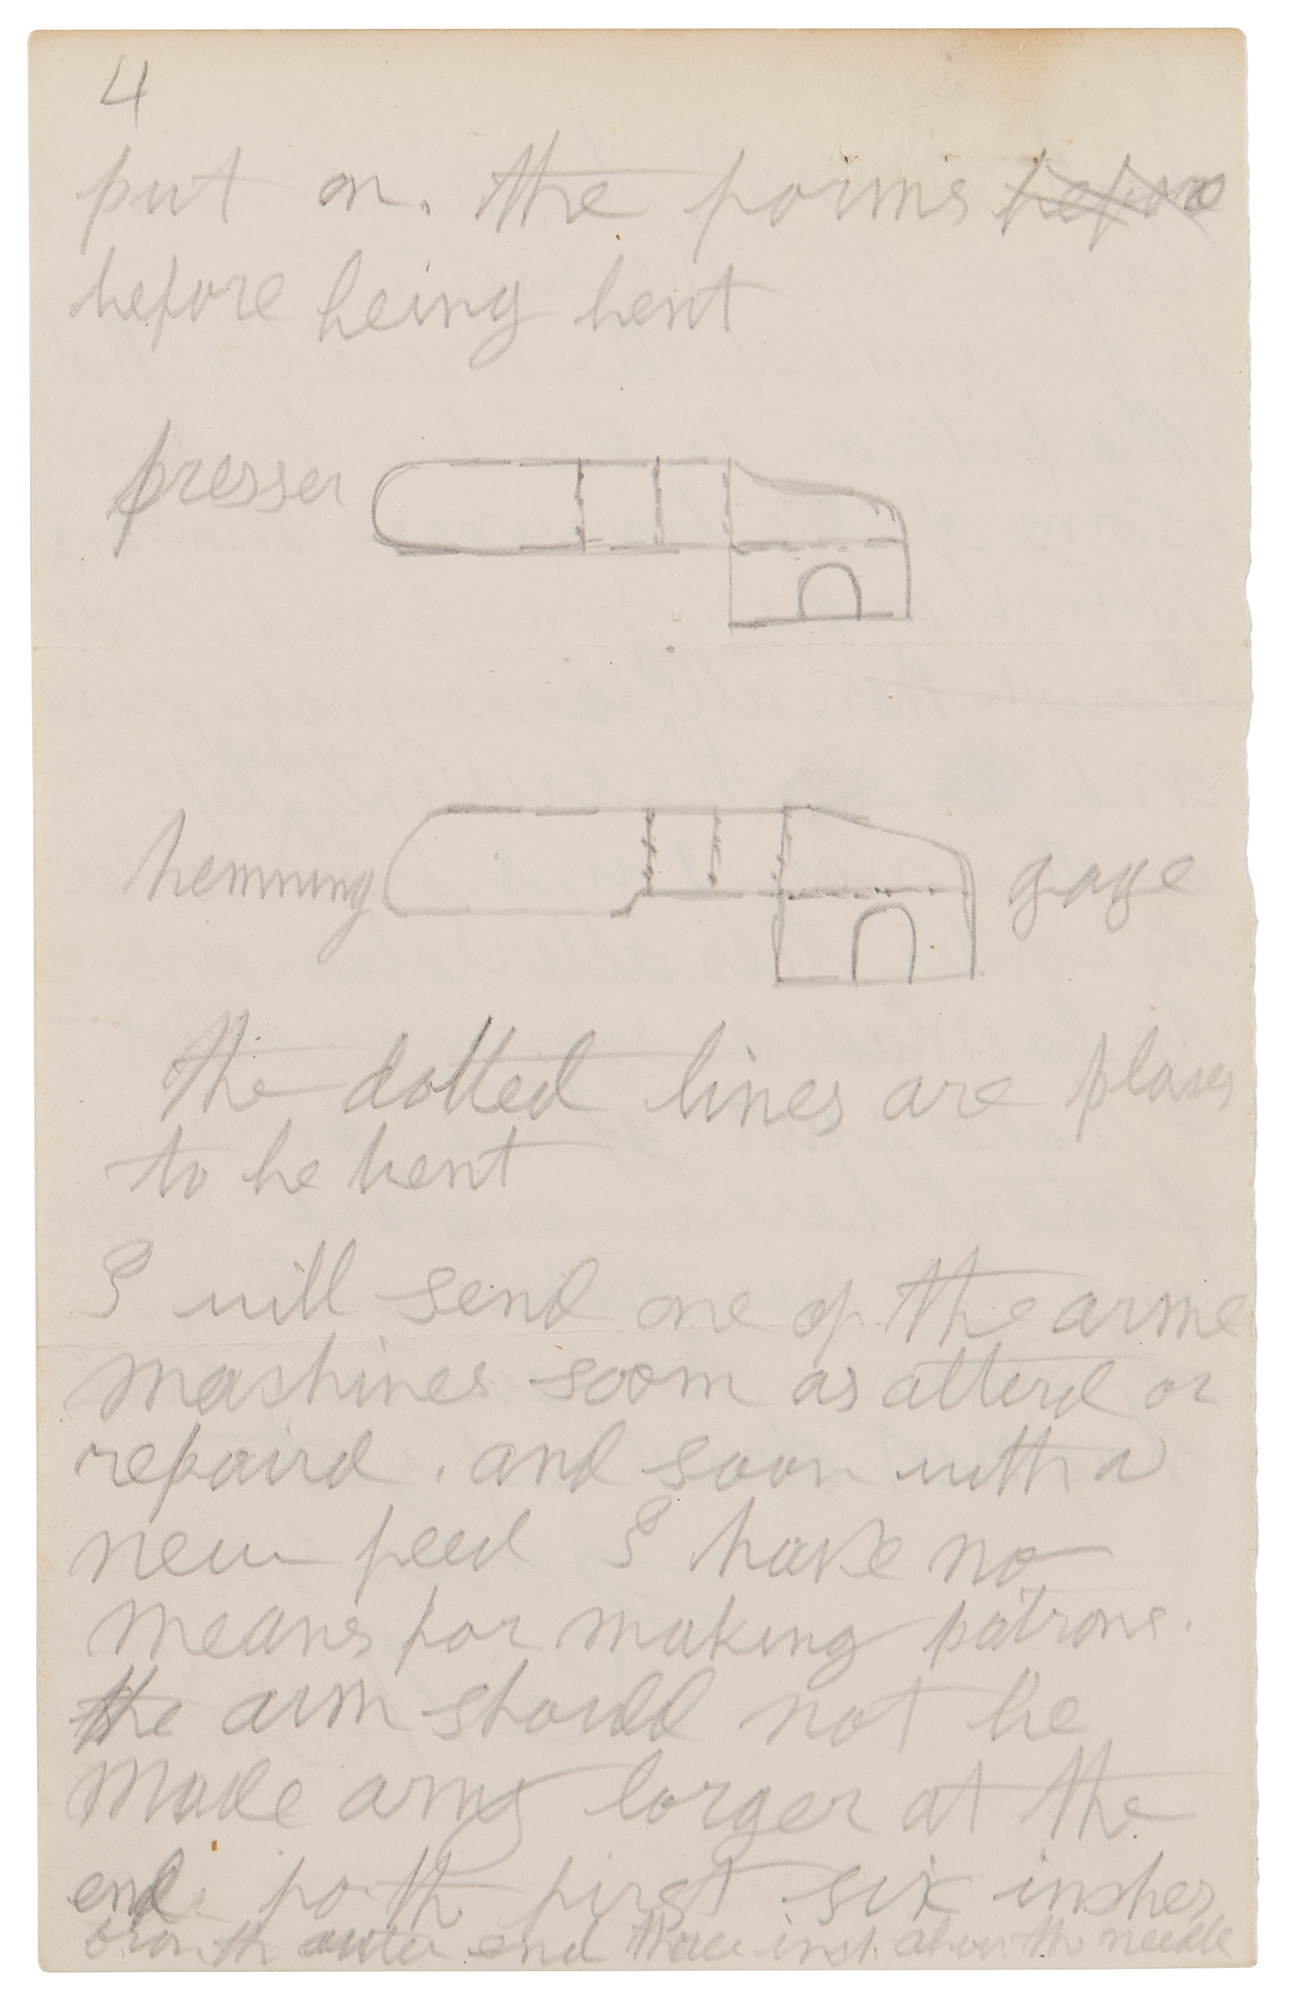 4
put on. the forms before
before being bent
presser
hemming gage
the dotted lines are plases
to be bent
I will send one of the arme
mashines soom as alterd or
repaird. and soon with a
new feed I have no
means for making patrons.
the arm should not be
made any larger at the
end. first six inshes
on the outer end insh above the needle